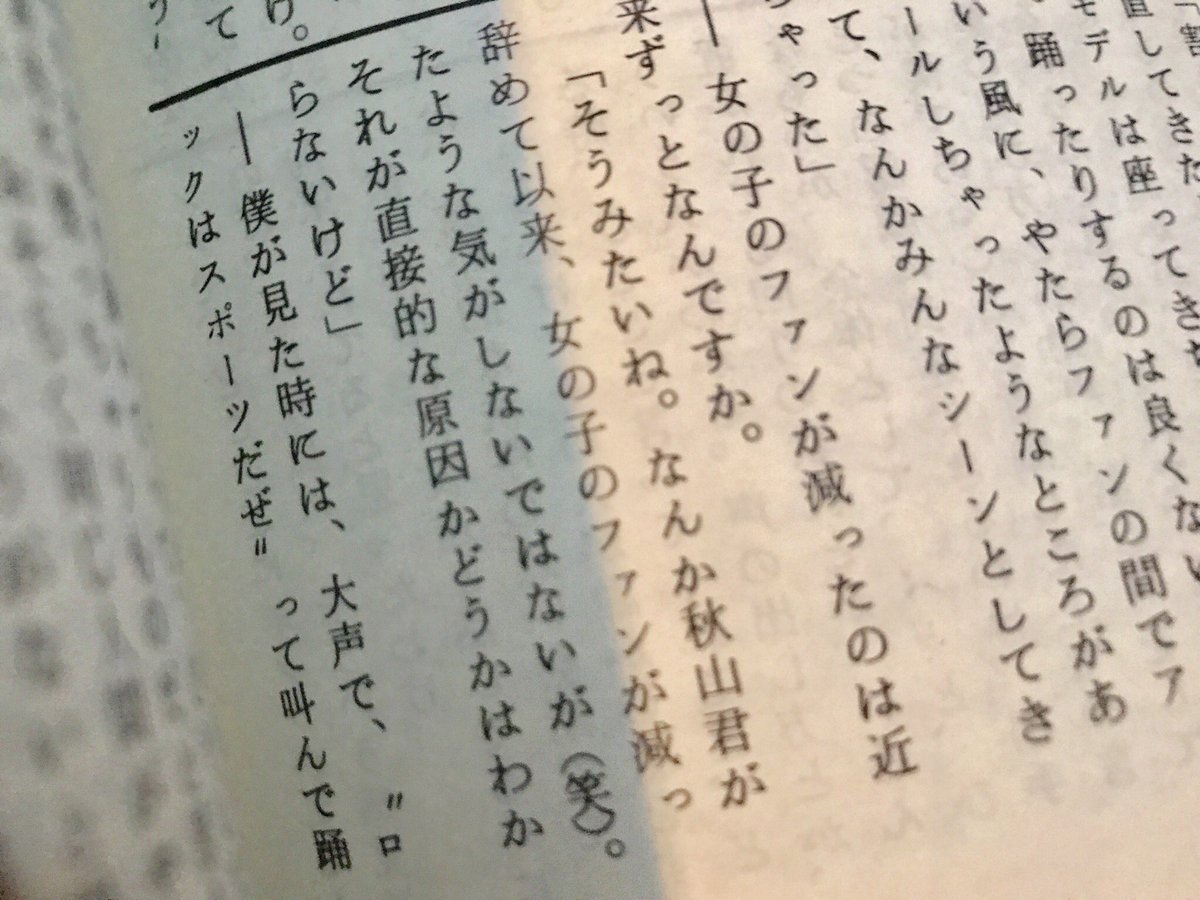 「割
直してきた
モデルは座ってきち
、踊ったりするのは良くない
いう風に、やたらファンの間でア
ールしちゃったようなところがあ
て、なんかみんなシーンとしてき
ちゃった」
― 女の子のファンが減ったのは近
来ずっとなんですか。
「そうみたいね。なんか秋山君が
辞めて以来、女の子のファンが減っ
たような気がしないではないが(笑)。
それが直接的な原因かどうかはわか
らないけど」
― 僕が見た時には、大声で、〃ロ
ックはスポーツだぜ〃って叫んで踊
け。
て